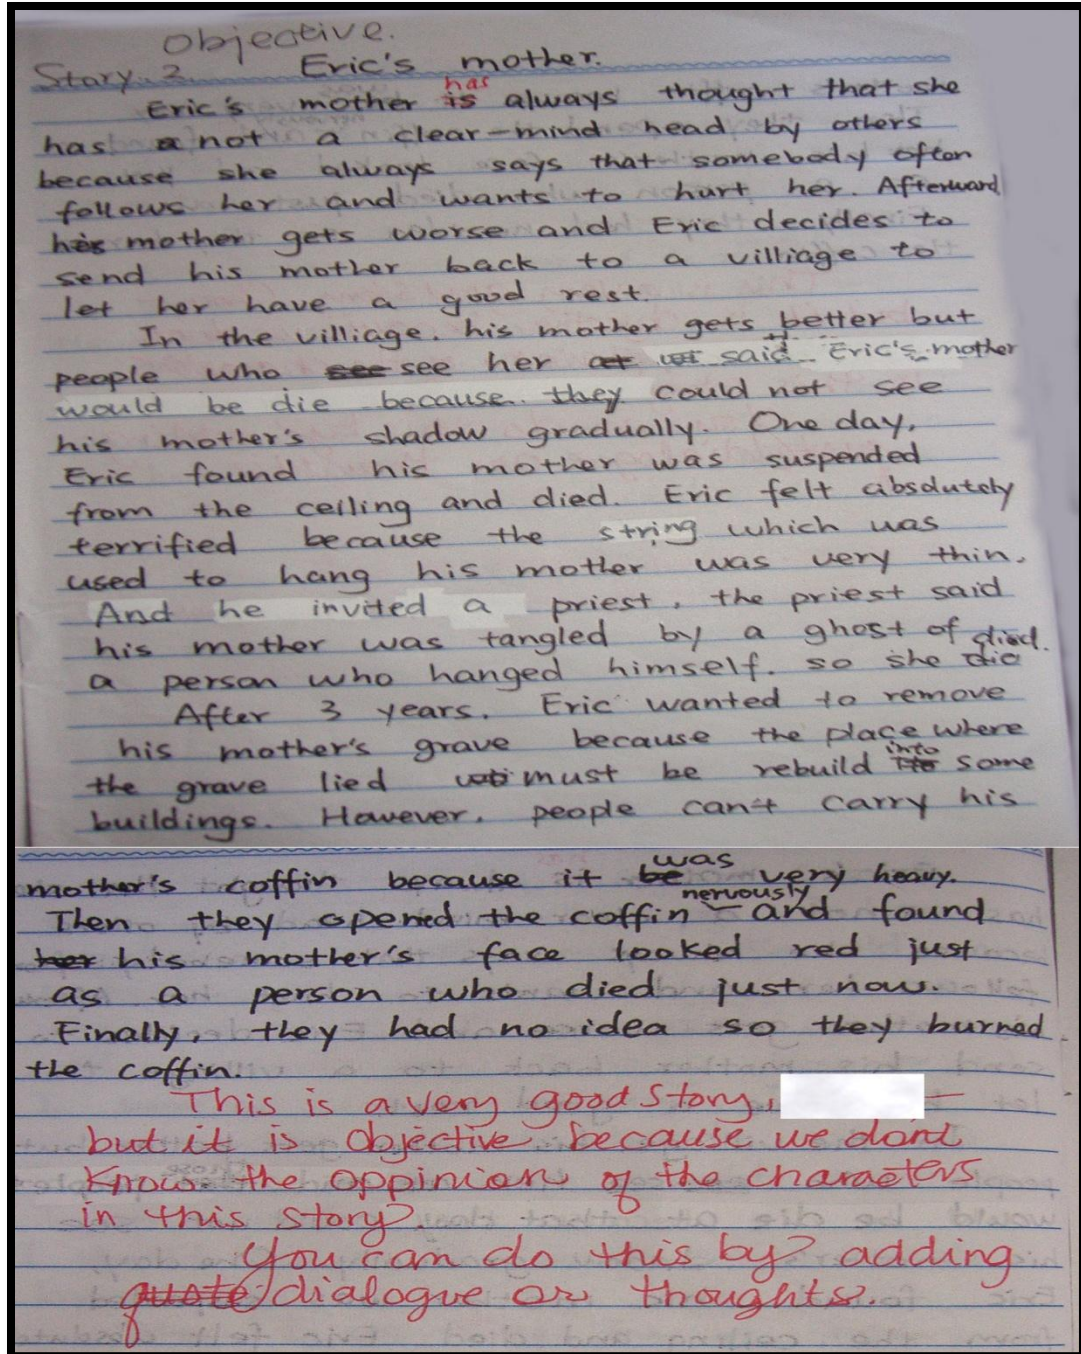 Objective.
Story 2. Eric's mother.
has
Eric's mother is always thought that she
has a not a clear-mind head by others
because she always says that somebody often
follows her and wants to hurt her. Afterward
his mother gets worse and Eric decides to
send his mother back to a villiage to
let her have a good rest.
In the villiage. his mother gets better but
people who see see her said Eric's mother
would be die because they could not see
his mother's shadow gradually. One day,
Eric found his mother was suspended
from the ceiling and died. Eric felt absolutely
terrified because the string which was
used to hang his mother was very thin.
And he invited a priest, the priest said
his mother was tangled by a ghost of died.
a person who hanged himself. so she die
After 3 years. Eric wanted to remove
his mother's grave because the place where
into
the grave lied must be rebuild some
buildings. However. people can't carry his
was
mother's coffin because it be very heavy.
nervously
Then they opened the coffin and found
her his mother's face looked red just
as a person who died just now.
Finally, they had no idea so they burned
the coffin.
This is a very good story, —
but it is objective because we don't
know the oppinion of the characters
in this story.
You can do this by adding
quote dialogue or thoughts.